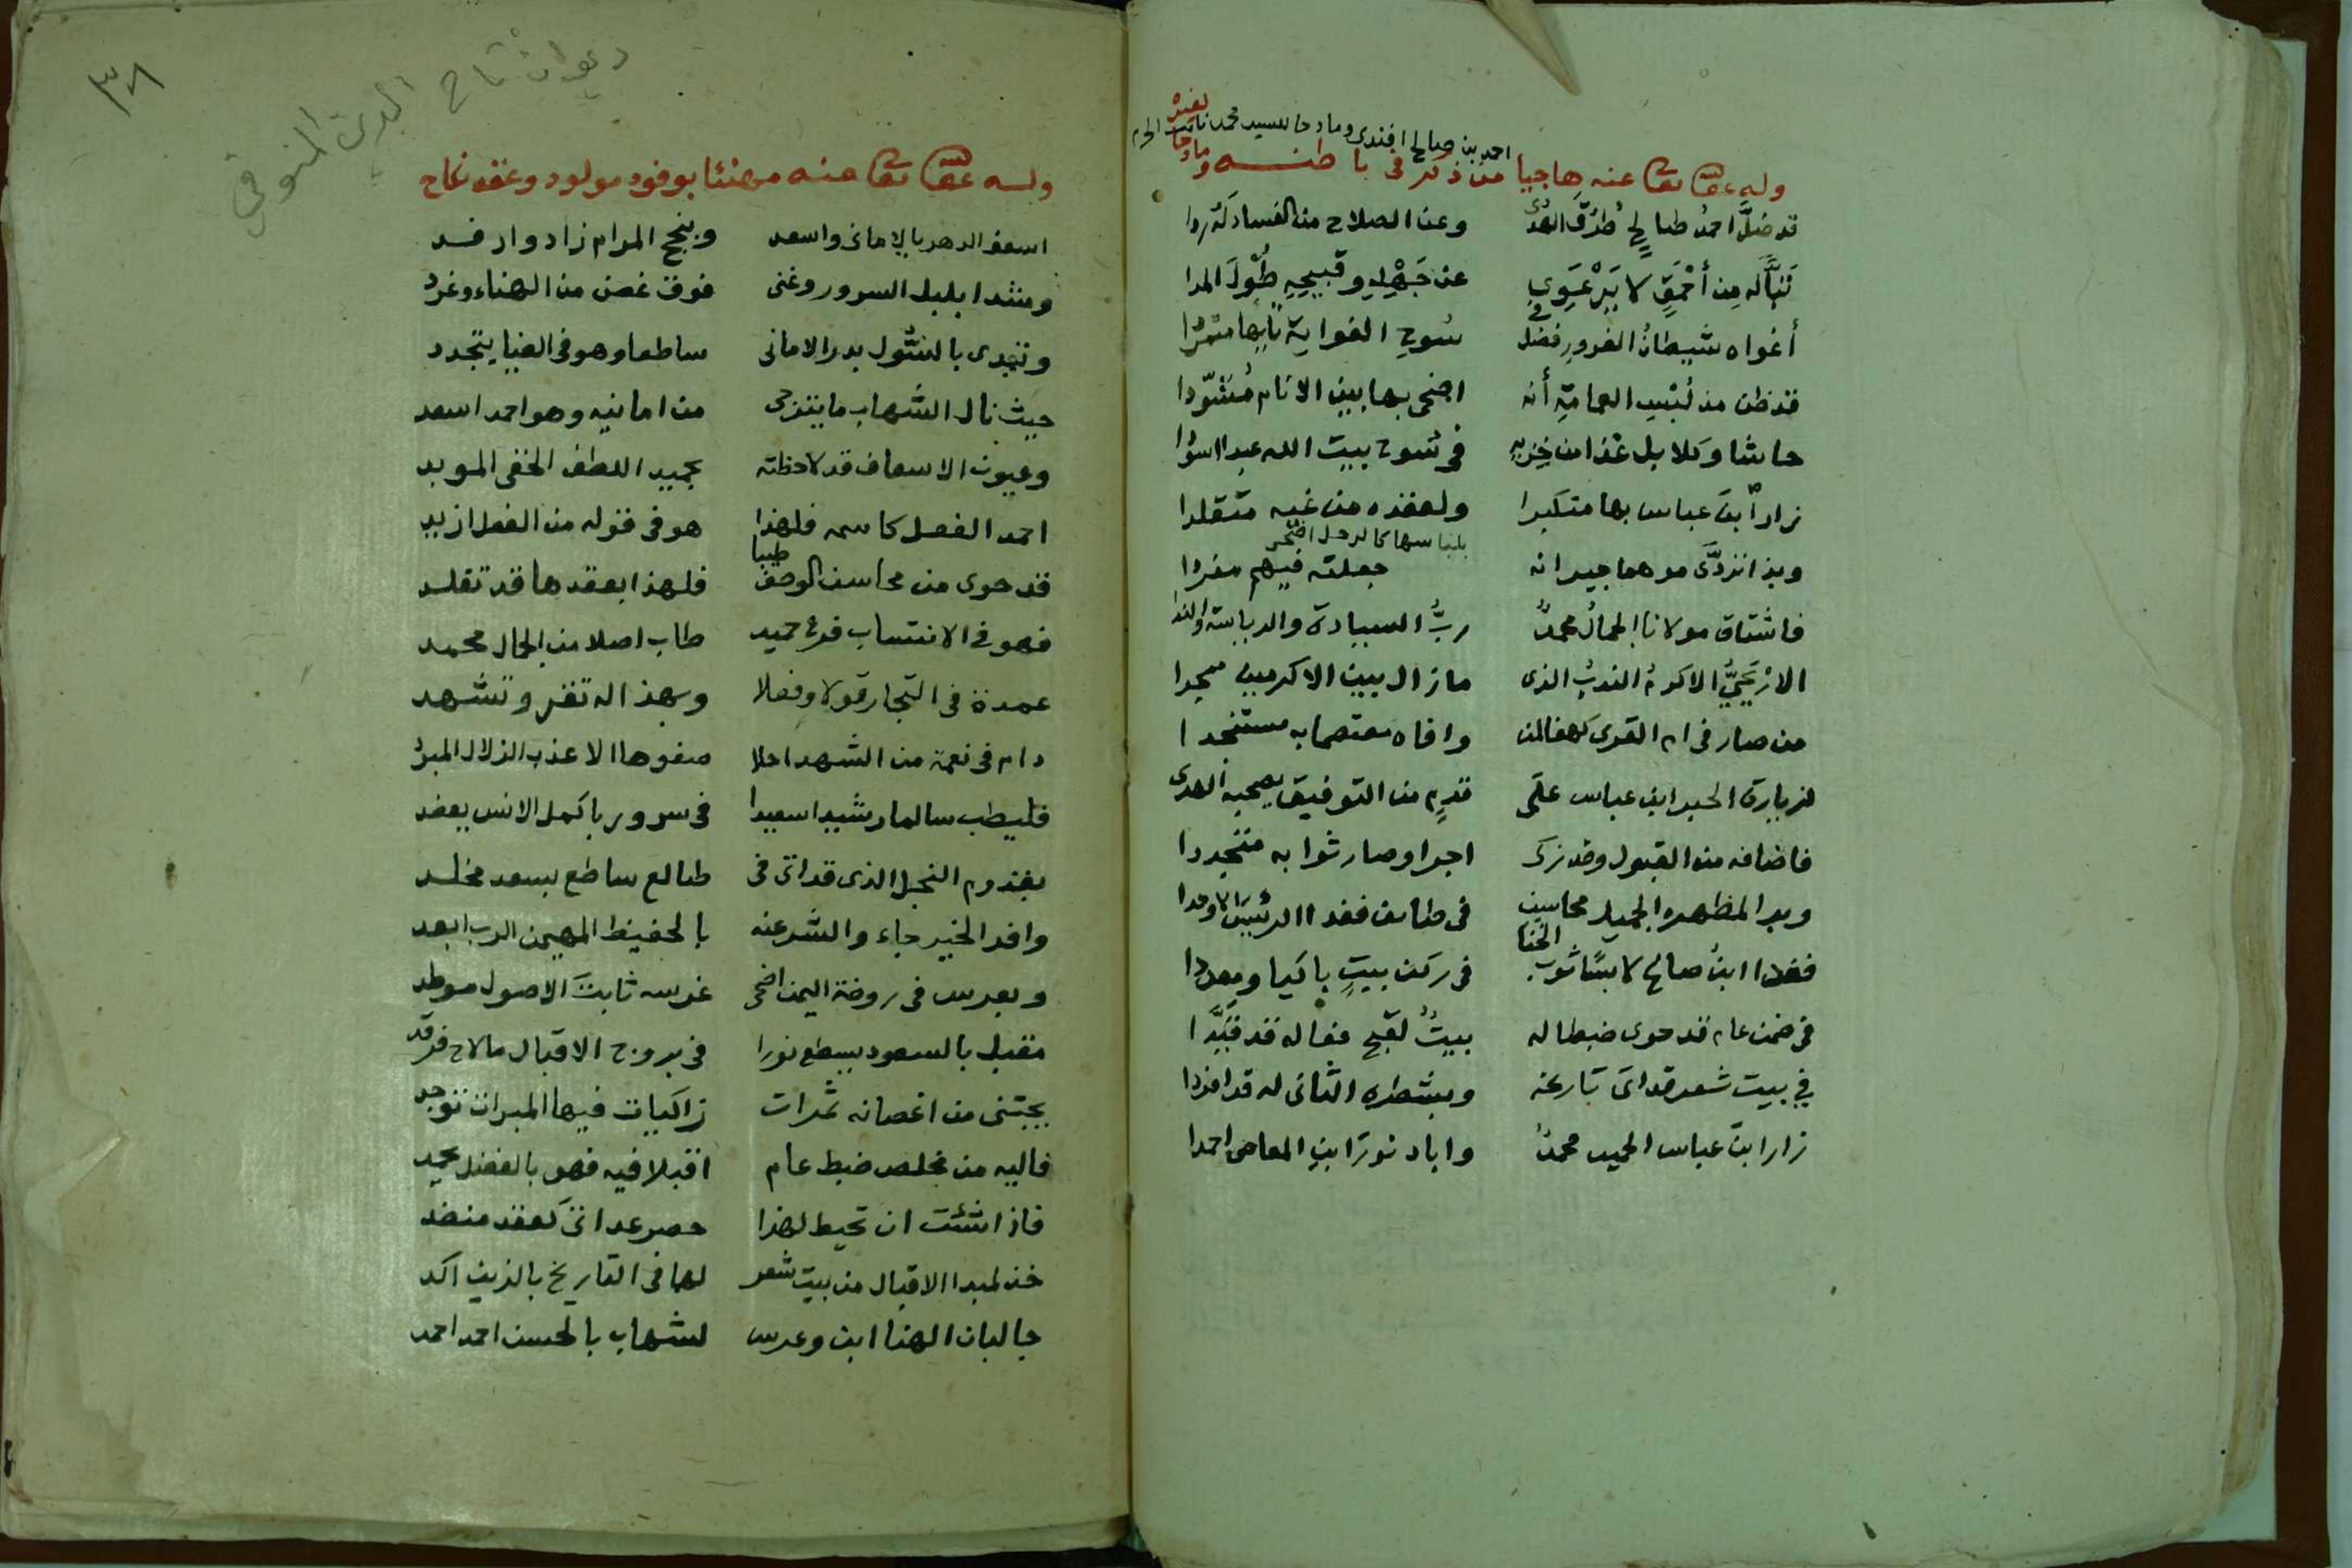 احمد بن صالح افندى ومادحا للسيد محمد نائب الحرم
وله عفا الله تعا عنه هاجيا من ذكر فى باطنه ومادحا لغيره
قد ضلَّ احمدُ صالحٍ طُرُقَ الهدى وعن الصلاح من الفساد
تَبًّا لَه مِن أَحْمَقٍ لا يَرْعَوِى عن جَهْلِهِ وقبيحِهِ طُولَ المدا
أغواه شيطانُ الغرور فضل فى سُوح الغواية تايها متمردا
قد ظن من لُبْسِ العمامةِ أنه اضحى بها بين الانام مُسَوّدا
حاشا وكلا بل غدا من خِزيه فى سُوح بيت الله عبدا اسودا
زار ابنَ عباس بها متكبرا ولعقده من غيه متقلدا
وبذا تردَّى موهما جيرانه بلباسها كالرجل اضحى
جعلته فيهم مفردا
فاشتاق مولانا الجمالُ محمدٌ ربُّ السيادة والرياسة والندا
الارْيَحِيُّ الاكرمُ الندبُ الذى مازال بين الاكرمين ممجدا
من صار فى ام القرى كهفا لمن وافاه معتصما به مستنجدا
لزيارة الحبر ابن عباس على قدمٍ من التوفيق يصحبه الهدى
فاضافه من القبول وقد زكى اجرا وصار ثوابه متجددا
وبدا لمظهره الجميل محاسن فى طائف فغدا الرئيس الاوحدا
فغدا ابنُ صالح لابسًا ثوب الخنا فى ركن بيتٍ باكيا ومعددا
فى ضمن عام قد حوى ضبطا له بيتٌ لقبح فعاله قد قيَّدا
فى بيت شعر قد اتى تاريخه وبشطره الثانى له قد افردا
زار ابنَ عباس الحميد محمدٌ واباد نورَ ابنِ المعاصى احمدا
٣٨
ديوان تاج الدين المنوفي
وله عفا الله تعا عنه مهنئا بوفود مولود وعقد نكاح
اسعف الدهر بالامانى واسعد وبنجح المرام زاد وارفد
ومشدا بلبل السرور وغنى فوق غصن من الهناء وغرد
وتبدى بالسُّول بدر الامانى ساطعا وهو فى الضيا يتجدد
حيث نال الشهاب ما يترجى من امانيه وهو احمد اسعد
وعيون الاسعاف قد لاحظته بجميل اللطف الخفى المويد
احمد الفضل كاسمه فلهذا هو فى قوله من الفعل ازيد
قد حوى من محاسن الوصف طيبا فلهذا بعقدها قد تقلد
فهو فى الانتساب فرع حميد طاب اصلا من الجمال محمد
عمدة فى التجار قولا وفعلا وبهذا له تقر وتشهد
دام فى نعمة من الشهد احلا صفوها الاعذب الزلال المبرد
فليطب سالما رشيدا سعيدا فى سرور باكمل الانس يعضد
بقدوم النجل الذى قد اتى فى طالع ساطع بسعد مخلد
وافد الخير جاء والشر عنه بالحفيظ المهيمن الرب ابعد
وبعرس فى روضة اليمن اضحى غرسه ثابت الاصول موطد
مقبل بالسعود يسطع نورا فى بروج الاقبال مالاح فرقد
يجتنى من اغصانه ثمرات زاكيات فيها المبرات توجد
فاليه من مخلص ضبط عام اقبلا فيه فهو بالفضل يحمد
فاذا شئت ان تحيط لهذا حصر عد اتى كعقد منضد
خذ لمبدا الاقبال من بيت شعر لهما فى التاريخ بالزين اكد
جالبان الهنا ابن وعرس لشهاب بالحسن احمد احمد